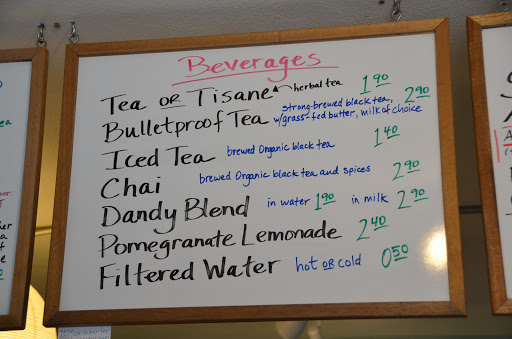 Beverages
Tea OR Tisane herbal tea 1.90
Bulletproof Tea strong-brewed black tea, w/grass-fed butter, milk of choice 2.90
Iced Tea brewed Organic black tea 1.40
Chai brewed Organic black tea and spices 2.90
Dandy Blend in water 1.90 in milk 2.90
Pomegranate Lemonade 2.40
Filtered Water hot OR cold 0.50